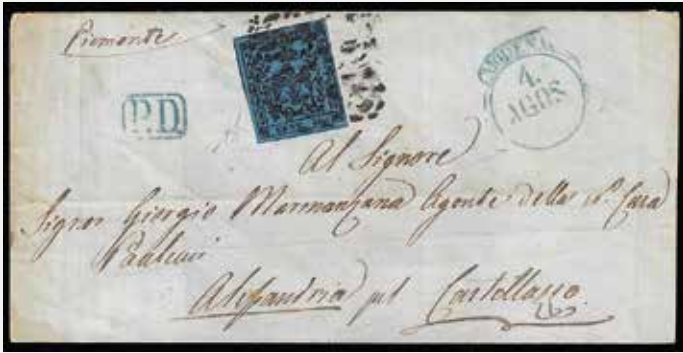 Piemonte
MODENA
4.
AGOS
P.D
Al Signore
Signor Giorgio Marmanzana Agente della Casa
Alessandria pel Castellazzo